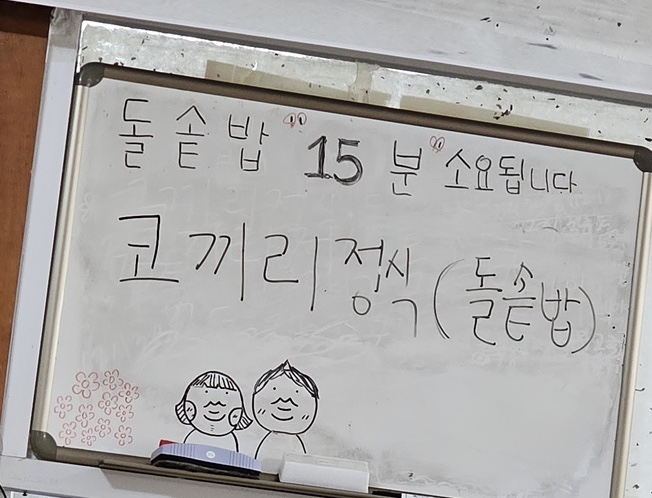 돌솥밥 "15분" 소요됩니다
코끼리정식(돌솥밥)